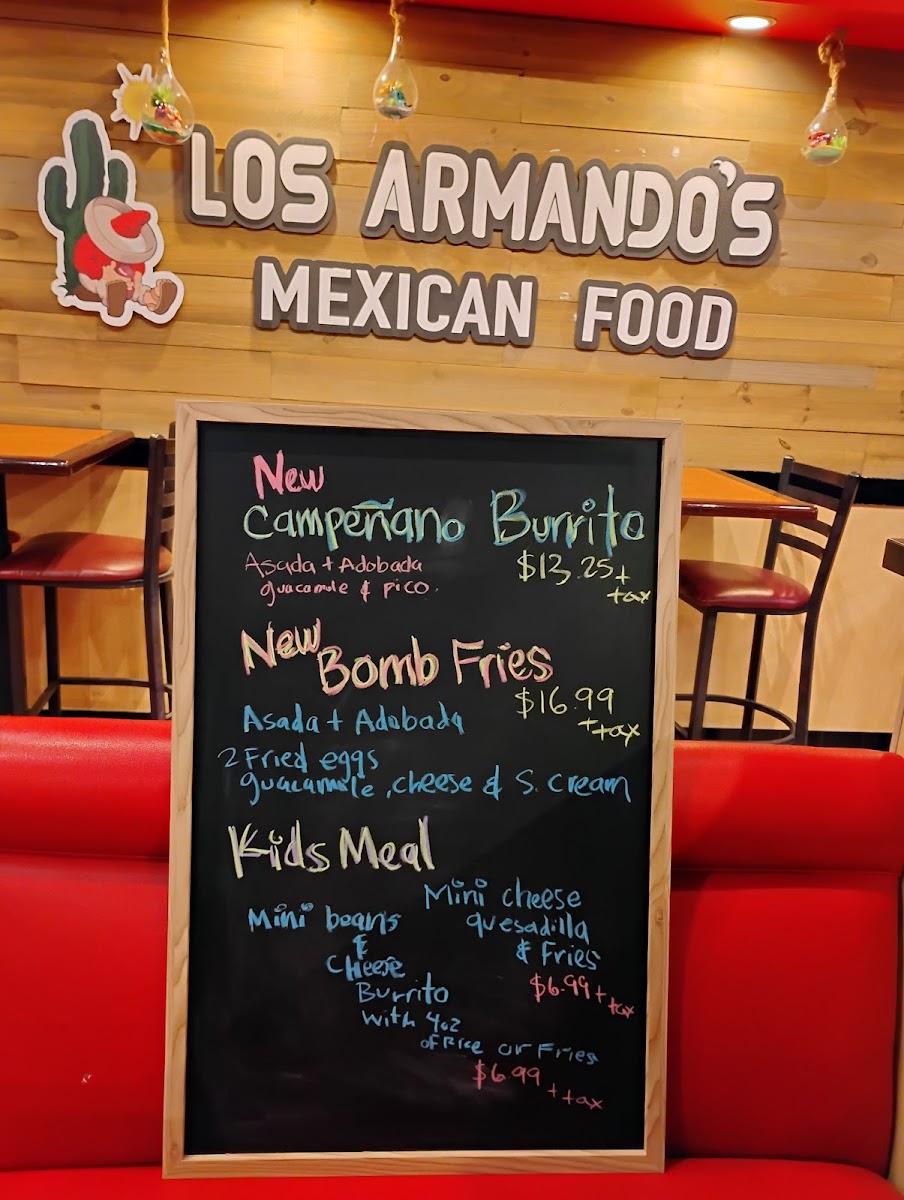 LOS ARMANDO'S
MEXICAN FOOD
New
Campeñano Burrito
Asada + Adobada
guacamole & pico.
$13.25 +
tax
New
Bomb Fries
$16.99
+ tax
Asada + Adobada
2 Fried eggs
guacamole, cheese & S. cream
Kids Meal
Mini beans
&
Cheese
Burrito
with 4oz
of Rice or Fries
$6.99
+ tax
Mini cheese
quesadilla
& Fries
$6.99 +
tax